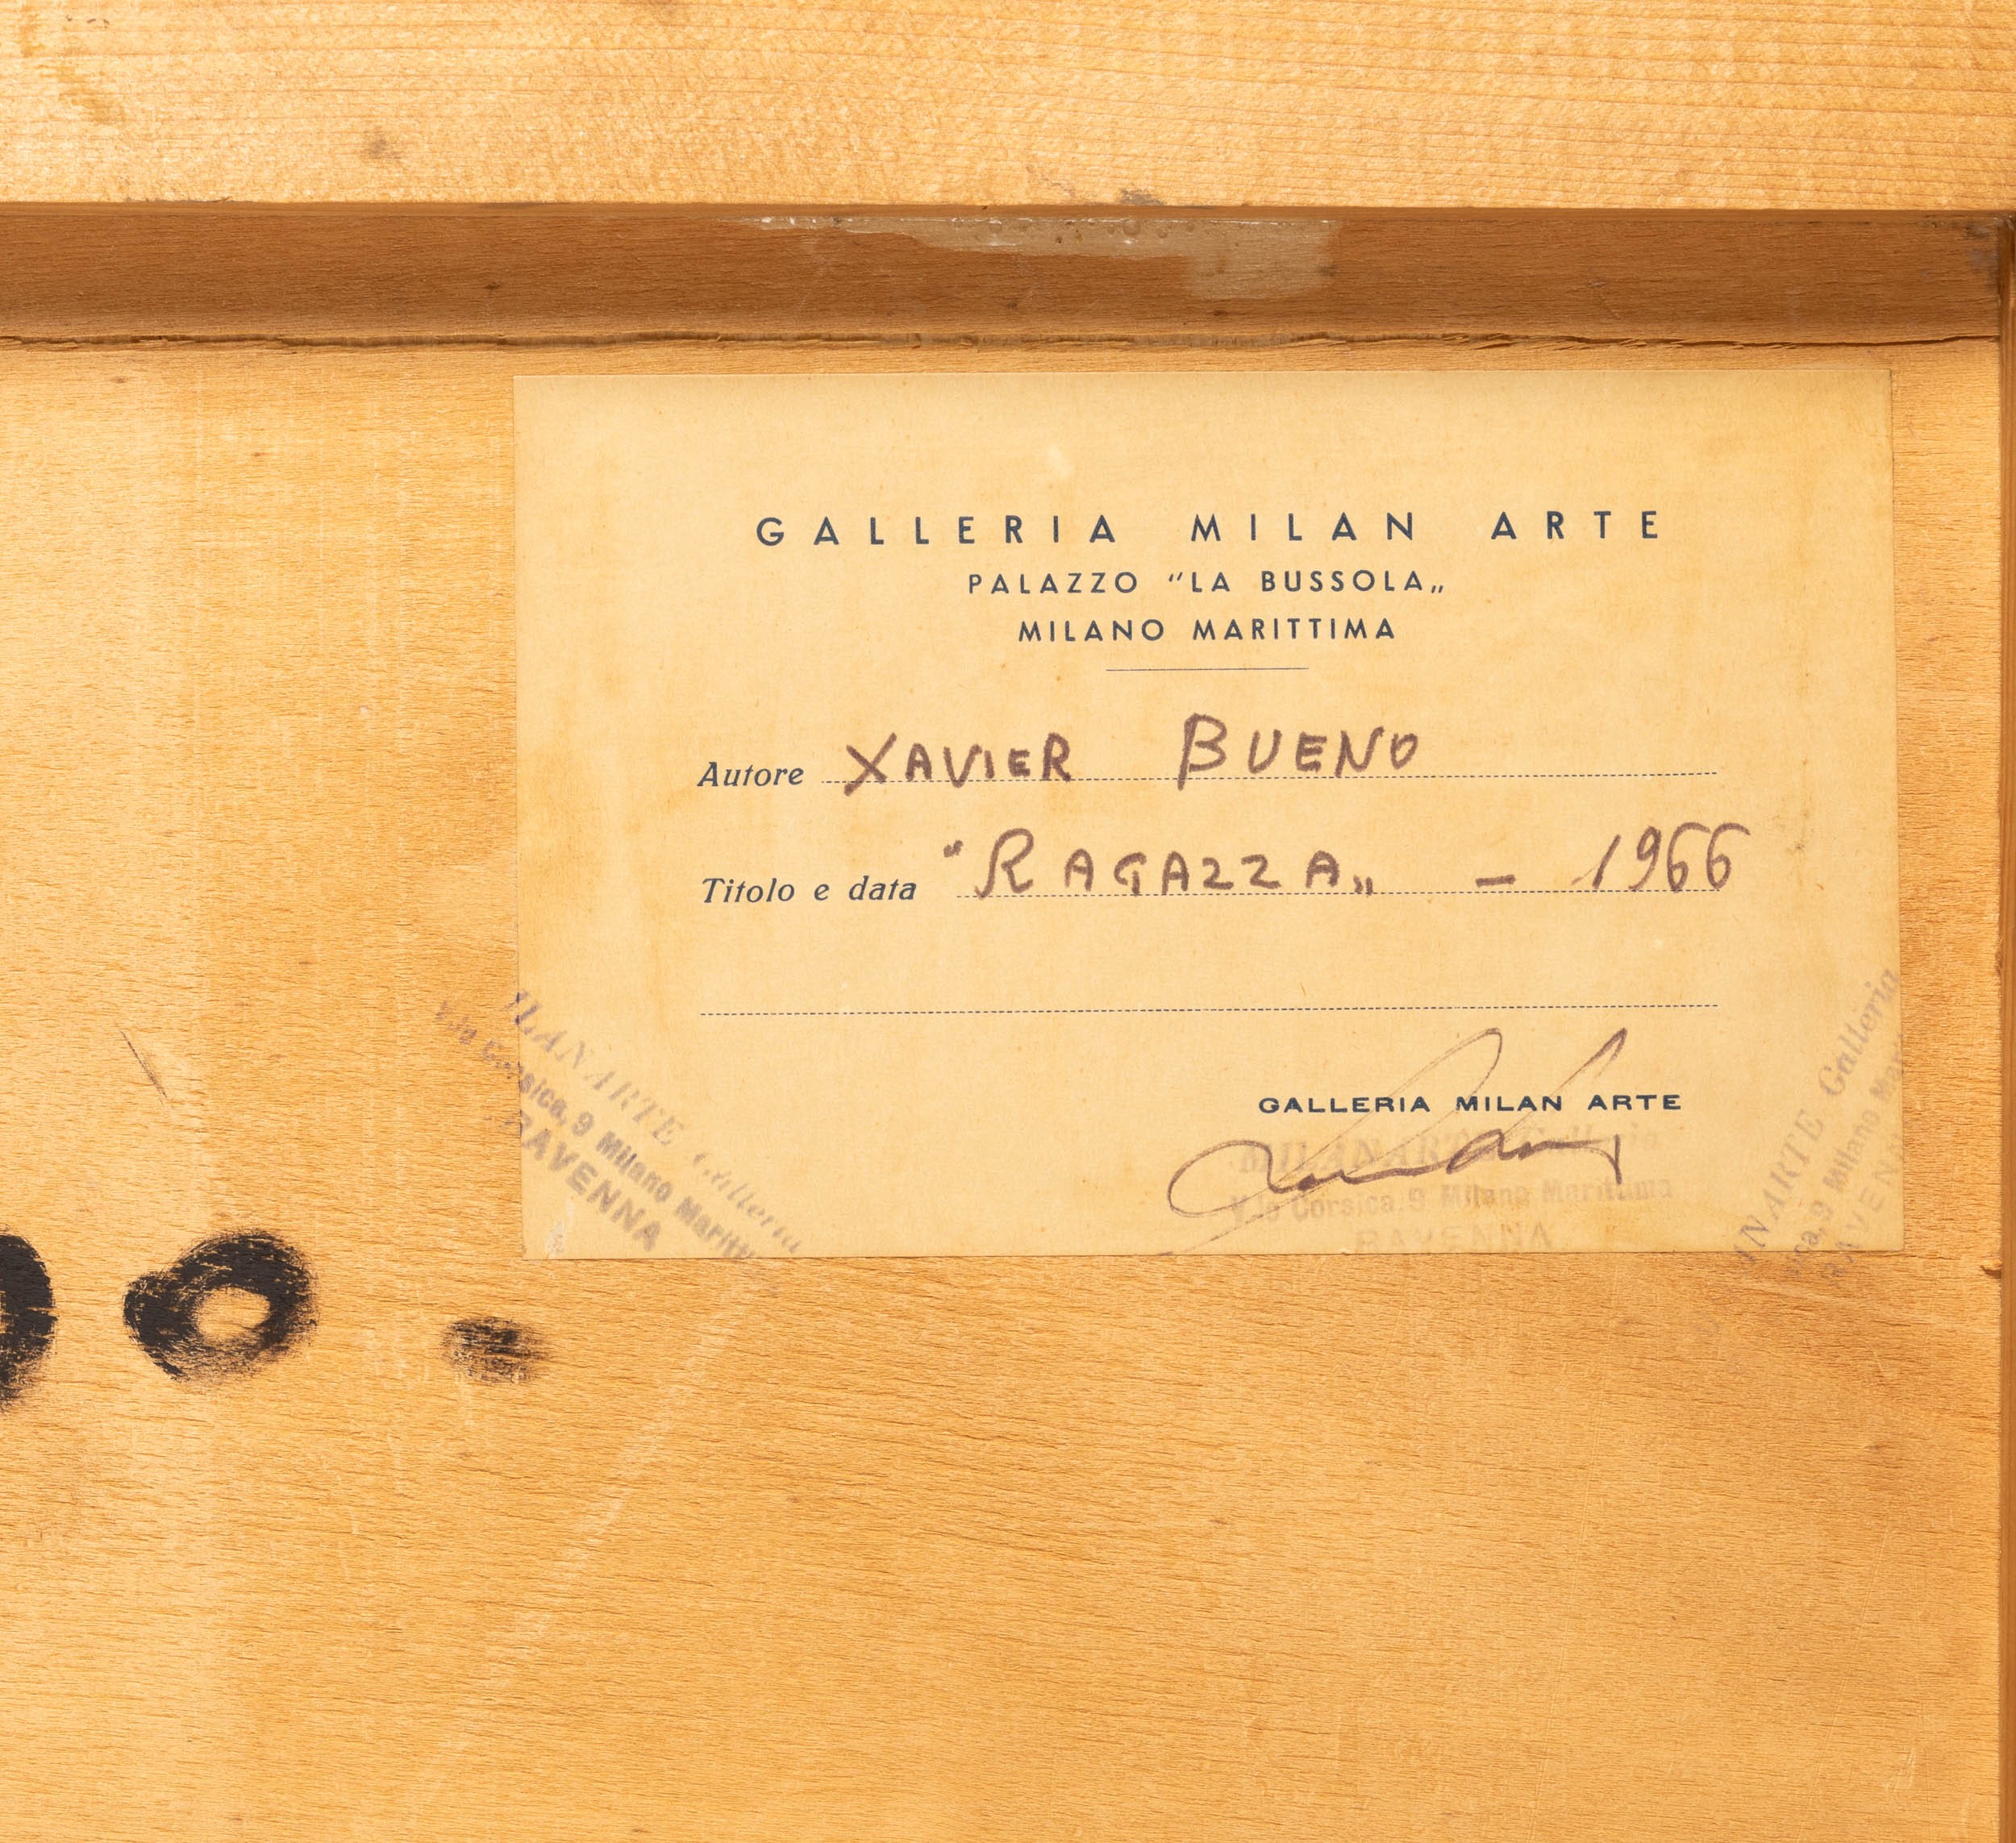 GALLERIA MILAN ARTE
PALAZZO "LA BUSSOLA„
MILANO MARITTIMA
Autore XAVIER BUENO
Titolo e data "RAGAZZA„ - 1966
GALLERIA MILAN ARTE
MILANARTE Galleria
V.le Corsica, 9 Milano Marittima
RAVENNA
ILANARTE Galleria
V.le Corsica, 9 Milano Maritti
RAVENNA
NARTE Galleria
ica, 9 Milano Mar
RAVENN